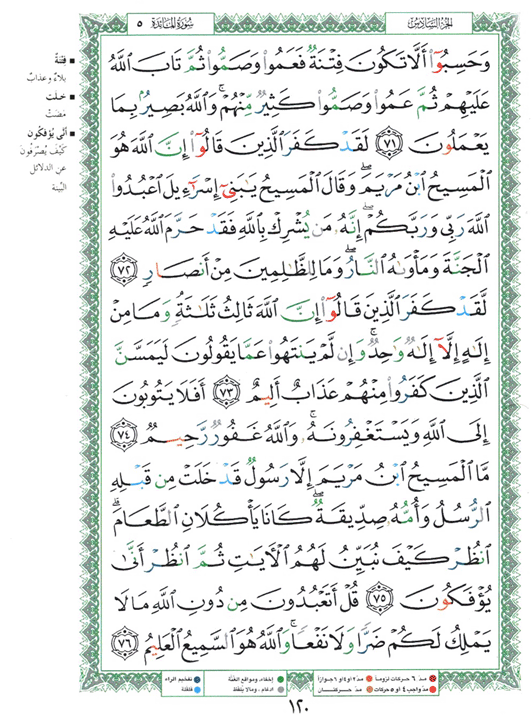 الجزء السادس
سورة المائدة
٥
وَحَسِبُوٓاْ أَلَّا تَكُونَ فِتۡنَةٞ فَعَمُواْ وَصَمُّواْ ثُمَّ تَابَ ٱللَّهُ
عَلَيۡهِمۡ ثُمَّ عَمُواْ وَصَمُّواْ كَثِيرٞ مِّنۡهُمۡۚ وَٱللَّهُ بَصِيرُۢ بِمَا
يَعۡمَلُونَ ٧١ لَقَدۡ كَفَرَ ٱلَّذِينَ قَالُوٓاْ إِنَّ ٱللَّهَ هُوَ
ٱلۡمَسِيحُ ٱبۡنُ مَرۡيَمَۖ وَقَالَ ٱلۡمَسِيحُ يَٰبَنِيٓ إِسۡرَٰٓءِيلَ ٱعۡبُدُواْ
ٱللَّهَ رَبِّي وَرَبَّكُمۡۖ إِنَّهُۥ مَن يُشۡرِكۡ بِٱللَّهِ فَقَدۡ حَرَّمَ ٱللَّهُ عَلَيۡهِ
ٱلۡجَنَّةَ وَمَأۡوَىٰهُ ٱلنَّارُۖ وَمَا لِلظَّٰلِمِينَ مِنۡ أَنصَارٖ ٧٢
لَّقَدۡ كَفَرَ ٱلَّذِينَ قَالُوٓاْ إِنَّ ٱللَّهَ ثَالِثُ ثَلَٰثَةٖۘ وَمَا مِنۡ
إِلَٰهٍ إِلَّآ إِلَٰهٞ وَٰحِدٞۚ وَإِن لَّمۡ يَنتَهُواْ عَمَّا يَقُولُونَ لَيَمَسَّنَّ
ٱلَّذِينَ كَفَرُواْ مِنۡهُمۡ عَذَابٌ أَلِيمٌ ٧٣ أَفَلَا يَتُوبُونَ
إِلَى ٱللَّهِ وَيَسۡتَغۡفِرُونَهُۥۚ وَٱللَّهُ غَفُورٞ رَّحِيمٞ ٧٤
مَّا ٱلۡمَسِيحُ ٱبۡنُ مَرۡيَمَ إِلَّا رَسُولٞ قَدۡ خَلَتۡ مِن قَبۡلِهِ
ٱلرُّسُلُ وَأُمُّهُۥ صِدِّيقَةٞۖ كَانَا يَأۡكُلَانِ ٱلطَّعَامَۗ
ٱنظُرۡ كَيۡفَ نُبَيِّنُ لَهُمُ ٱلۡأٓيَٰتِ ثُمَّ ٱنظُرۡ أَنَّىٰ
يُؤۡفَكُونَ ٧٥ قُلۡ أَتَعۡبُدُونَ مِن دُونِ ٱللَّهِ مَا لَا
يَمۡلِكُ لَكُمۡ ضَرّٗا وَلَا نَفۡعٗاۚ وَٱللَّهُ هُوَ ٱلسَّمِيعُ ٱلۡعَلِيمُ ٧٦
■ فتنة
بلاء وعذاب
■ خلت
مضت
■ أنى يؤفكون
كيف يصرفون
عن الدلائل
البينة
مد ٦ حركات لزوماً ● مد٢ أو٤ أو٦ جوازاً
مد واجب ٤ أو ٥ حركات ● مد حركتان
إخفاء، ومواقع الغنة
ادغام، وما لا يلفظ
تفخيم الراء
قلقلة
١٢٠